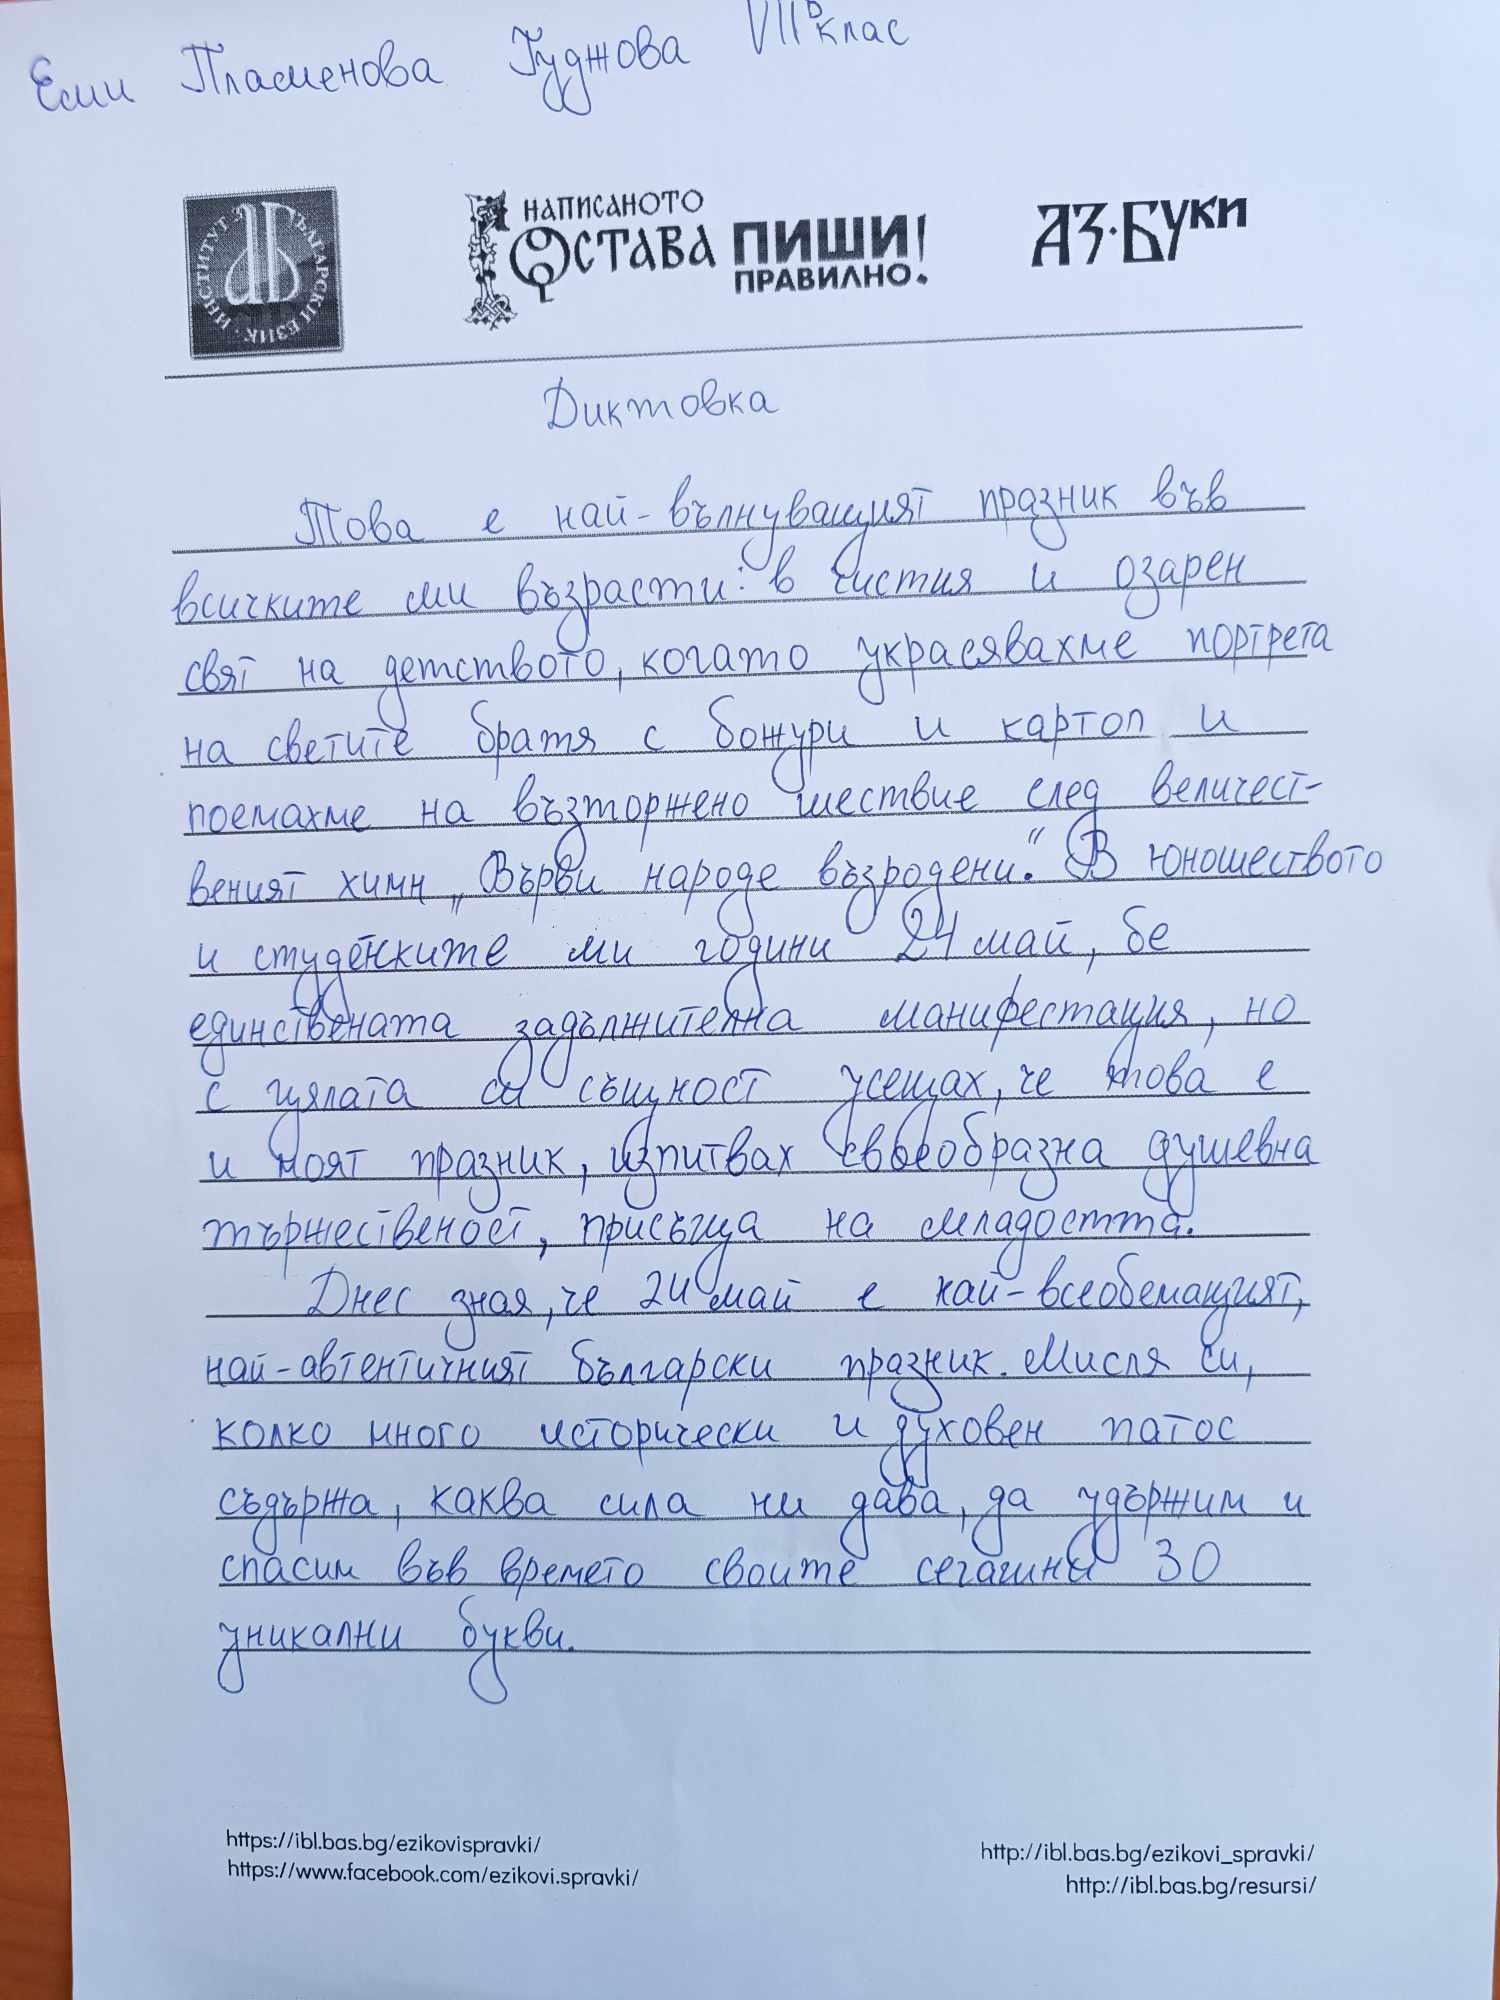 Еми Пламенова Гуджова VII клас
ИНСТИТУТ ЗА БЪЛГАРСКИ ЕЗИК
НАПИСАНОТО ОСТАВА ПИШИ ПРАВИЛНО!
АЗ·БУКИ
Диктовка
Това е най-вълнуващият празник във
всичките ми възрасти: в чистия и озарен
свят на детството, когато украсявахме портрета
на светите братя с божури и картоп и
поемахме на възторжено шествие след величест-
веният химн „Върви народе възродени." В юношеството
и студенските ми години 24 май, бе
единствената задължителна манифестация, но
с цялата си същност усещах, че това е
и моят празник, изпитвах своеобразна душевна
тържественост, присъща на младостта.
Днес зная, че 24 май е най-всеобемащият,
най-автентичният български празник. Мисля си,
колко много исторически и духовен патос
съдържа, каква сила ни дава, да удържим и
спасим във времето своите сегашни 30
уникални букви.
https://ibl.bas.bg/ezikovispravki/
https://www.facebook.com/ezikovi.spravki/
http://ibl.bas.bg/ezikovi_spravki/
http://ibl.bas.bg/resursi/